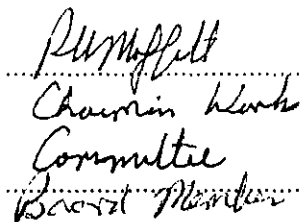 RU Moffitt
Chairman Work
Committee
Board Member